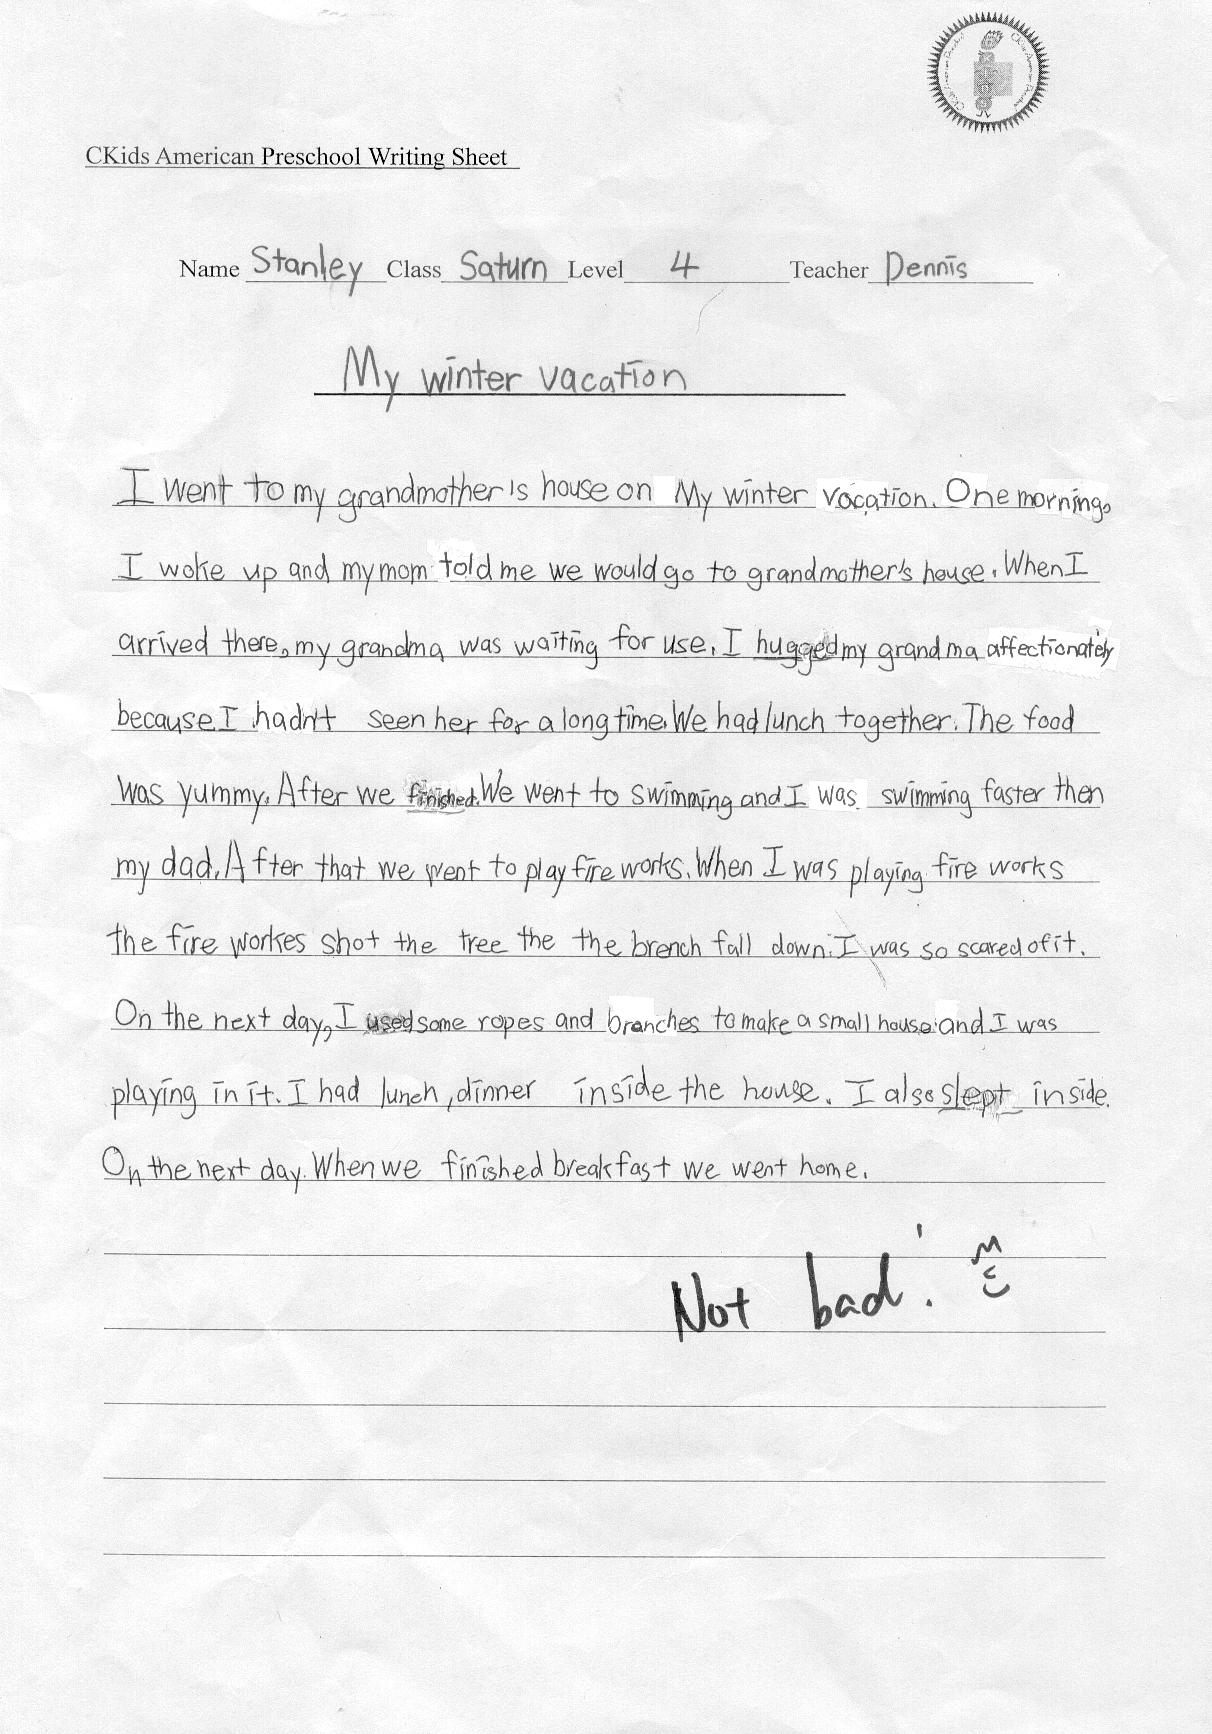 CKids American Preschool Writing Sheet
Name Stanley Class Saturn Level 4 Teacher Dennis
My winter vacation
I went to my grandmother's house on My winter vacation. One morning,
I woke up and my mom told me we would go to grandmother's house. When I
arrived there, my grandma was waiting for use. I hugged my grandma affectionately
because I hadn't seen her for a long time. We had lunch together. The food
was yummy. After we finished. We went to swimming and I was swimming faster then
my dad. After that we went to play fire works. When I was playing fire works
the fire workes shot the tree the the brench fall down. I was so scared of it.
On the next day, I used some ropes and branches to make a small house and I was
playing in it. I had lunch, dinner inside the house. I also slept inside.
On the next day. When we finished breakfast we went home.
Not bad!